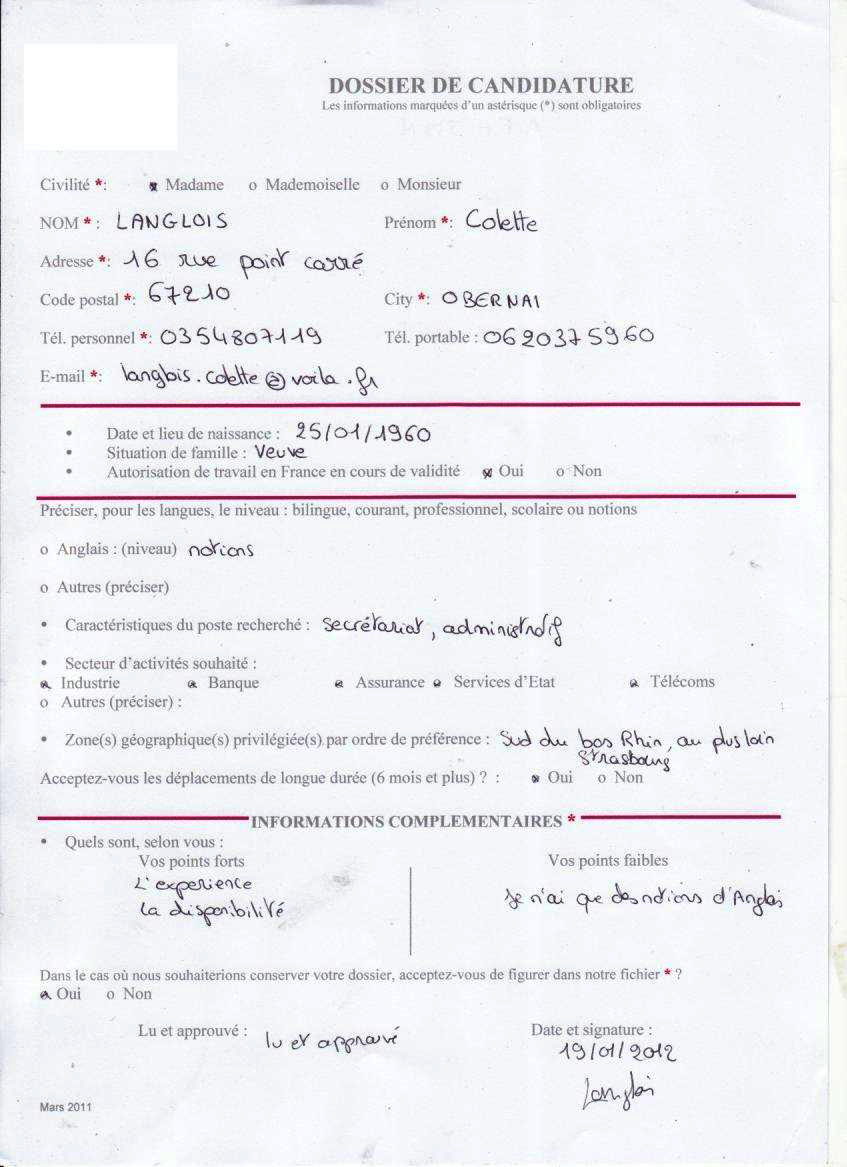 DOSSIER DE CANDIDATURE
Les informations marquées d'un astérisque (*) sont obligatoires
Civilité *: Madame o Mademoiselle o Monsieur
NOM * : LANGLOIS Prénom *: Colette
Adresse *: 16 rue point carré
Code postal *: 67210 City *: OBERNAI
Tél. personnel *: 0354807119 Tél. portable : 0620375960
E-mail *: langlois.colette@voila.fr
• Date et lieu de naissance : 25/01/1960
• Situation de famille : Veuve
• Autorisation de travail en France en cours de validité Oui o Non
Préciser, pour les langues, le niveau : bilingue, courant, professionnel, scolaire ou notions
o Anglais : (niveau) notions
o Autres (préciser)
• Caractéristiques du poste recherché : secrétariat, administratif
• Secteur d'activités souhaité :
Industrie Banque Assurance Services d'Etat Télécoms
o Autres (préciser) :
• Zone(s) géographique(s) privilégiée(s) par ordre de préférence : Sud du bas Rhin, au plus loin
Strasbourg
Acceptez-vous les déplacements de longue durée (6 mois et plus) ? : Oui o Non
INFORMATIONS COMPLEMENTAIRES *
• Quels sont, selon vous :
Vos points forts Vos points faibles
L'experience
la disponibilité
Je n'ai que des notions d'Anglais
Dans le cas où nous souhaiterions conserver votre dossier, acceptez-vous de figurer dans notre fichier * ?
Oui o Non
Lu et approuvé : lu et approuvé Date et signature :
19/01/2012
Langlois
Mars 2011